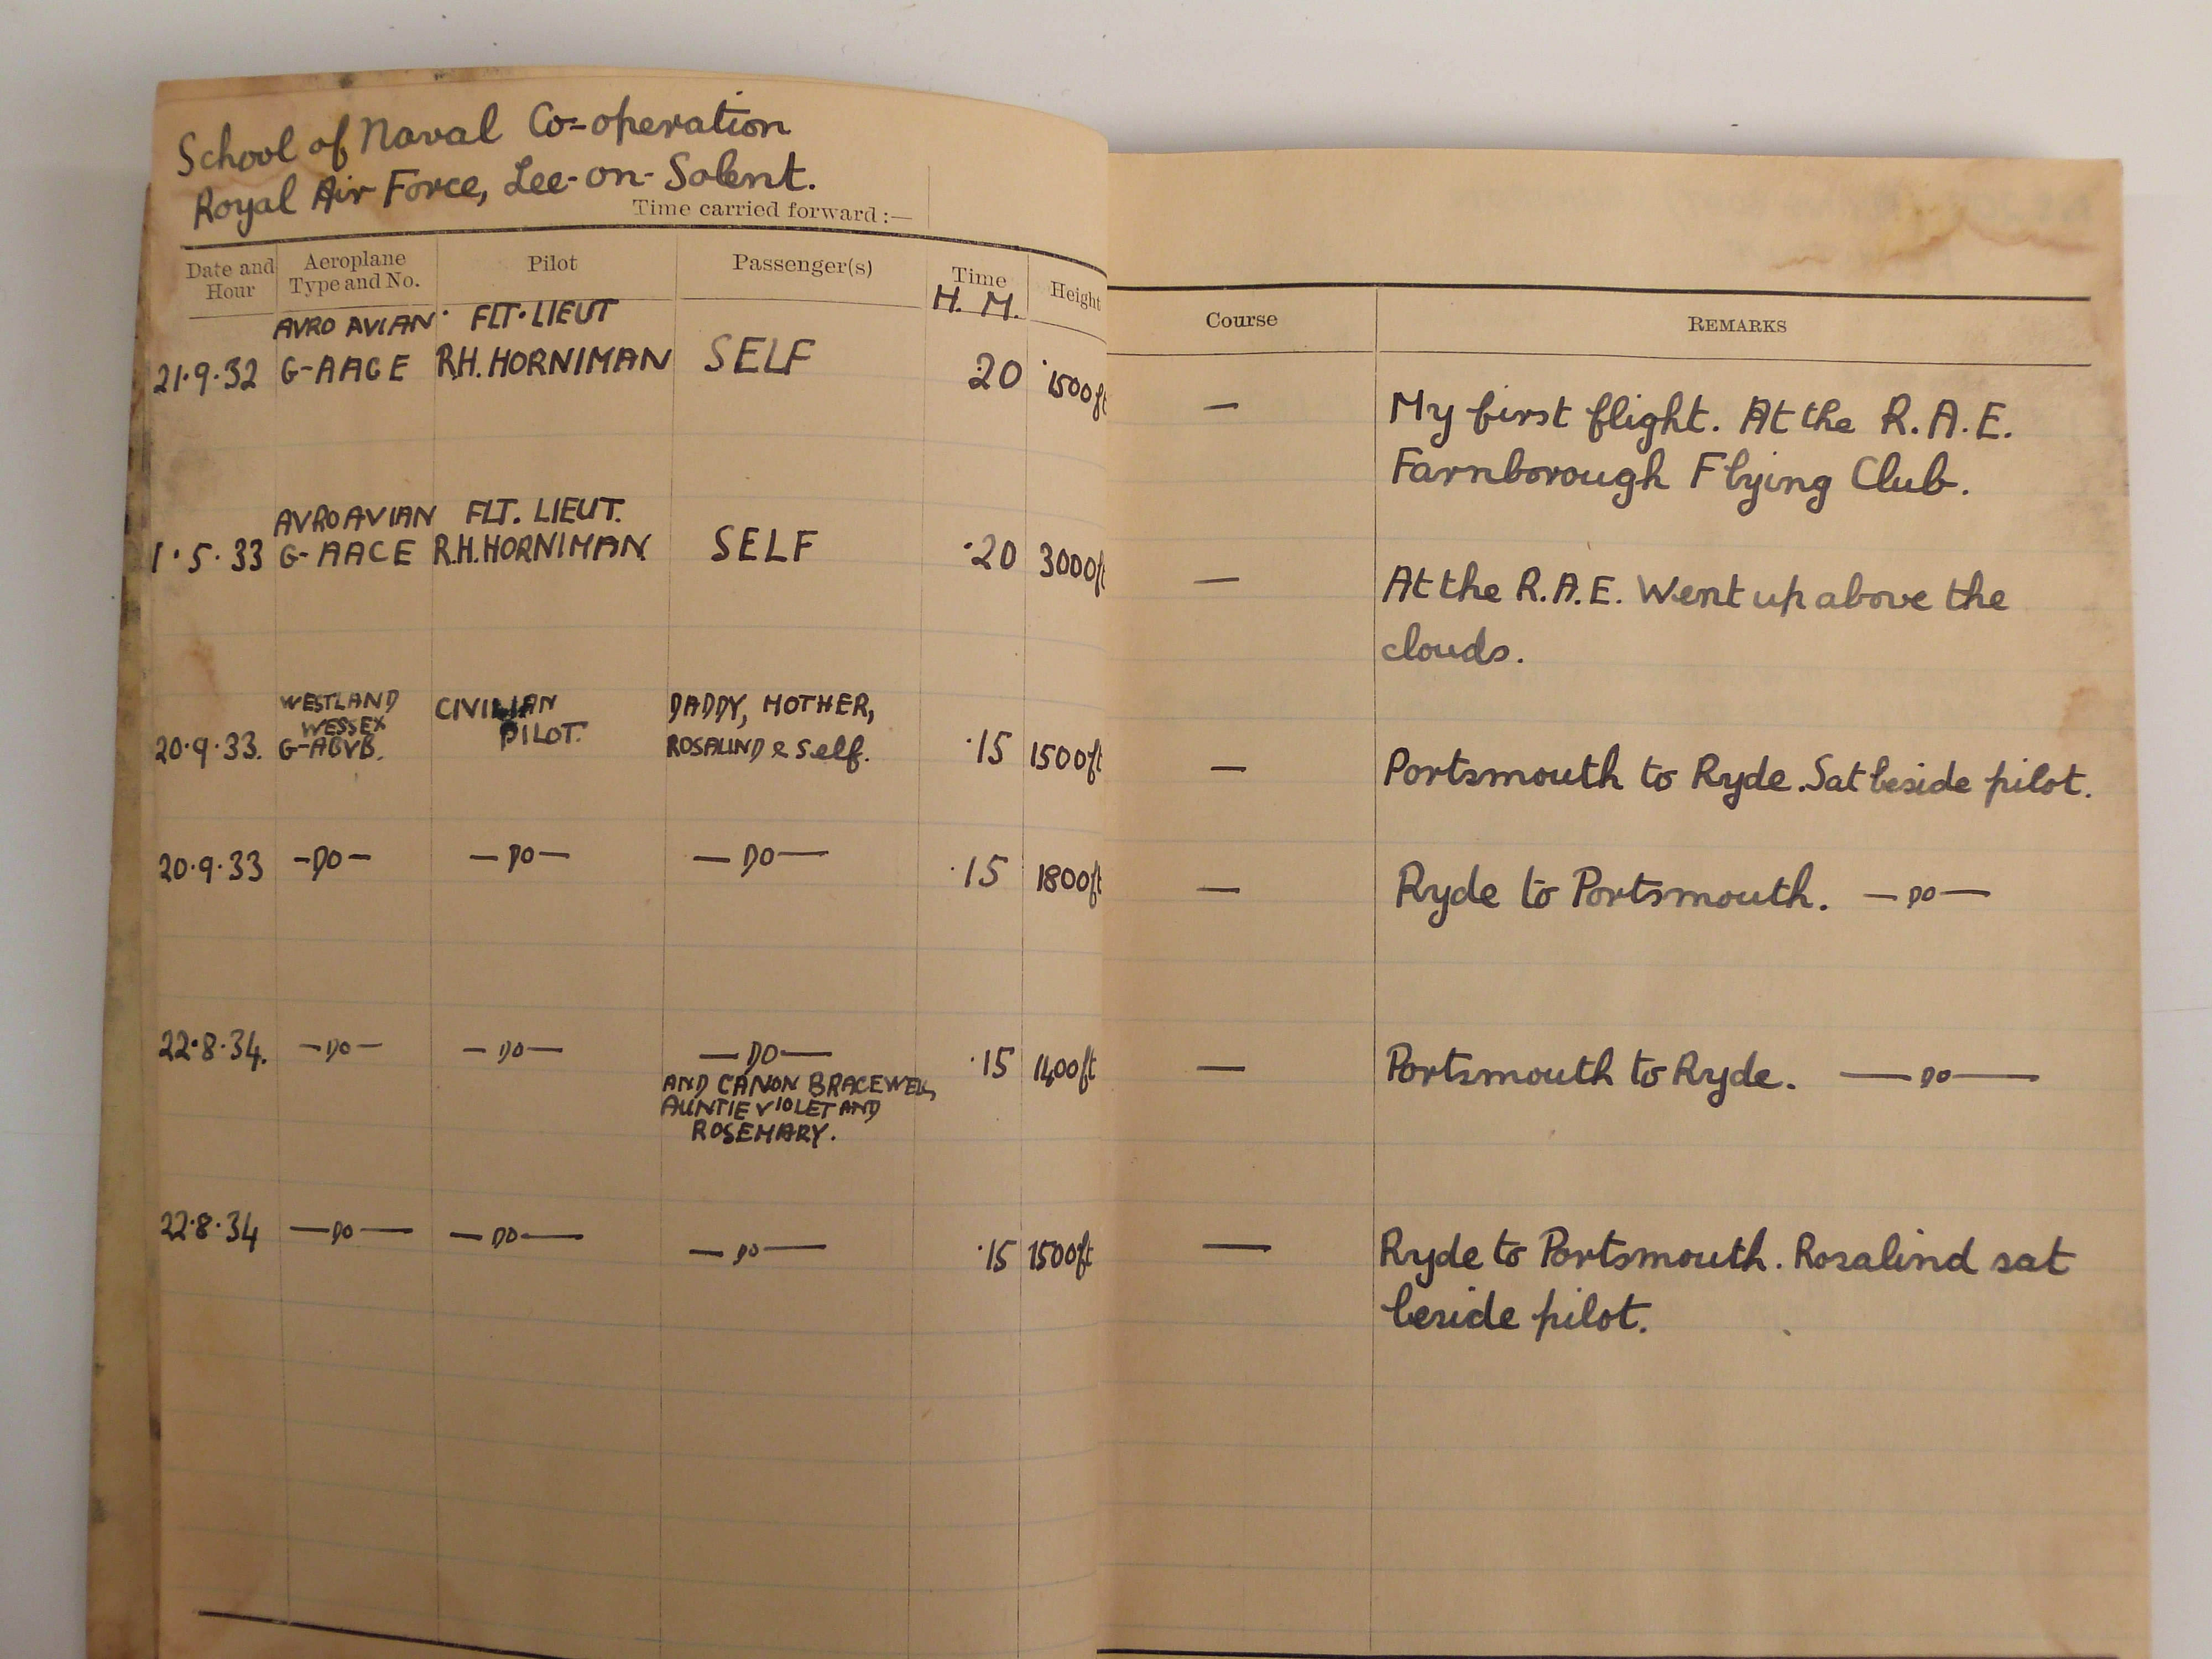 School of Naval Co-operation
Royal Air Force, Lee-on-Solent.
Time carried forward :—
Date and Hour Aeroplane Type and No. Pilot Passenger(s) Time H. M. Height Course REMARKS
21·9·32 AVRO AVIAN G-AACE FLT·LIEUT R.H. HORNIMAN SELF ·20 1500ft — My first flight. At the R.A.E.
Farnborough Flying Club.
1·5·33 AVRO AVIAN G-AACE FLT. LIEUT. R.H. HORNIMAN SELF ·20 3000ft — At the R.A.E. Went up above the
clouds.
20·9·33. WESTLAND WESSEX G-ABVB. CIVILIAN PILOT. DADDY, MOTHER, ROSALIND & Self. ·15 1500ft — Portsmouth to Ryde. Sat beside pilot.
20·9·33 —DO— —DO— —DO— ·15 1800ft — Ryde to Portsmouth. —DO—
22·8·34. —DO— —DO— —DO— ·15 1400ft — Portsmouth to Ryde. —DO—
AND CANON BRACEWELL,
AUNTIE VIOLET AND
ROSEMARY.
22·8·34 —DO— —DO— —DO— ·15 1500ft — Ryde to Portsmouth. Rosalind sat
beside pilot.